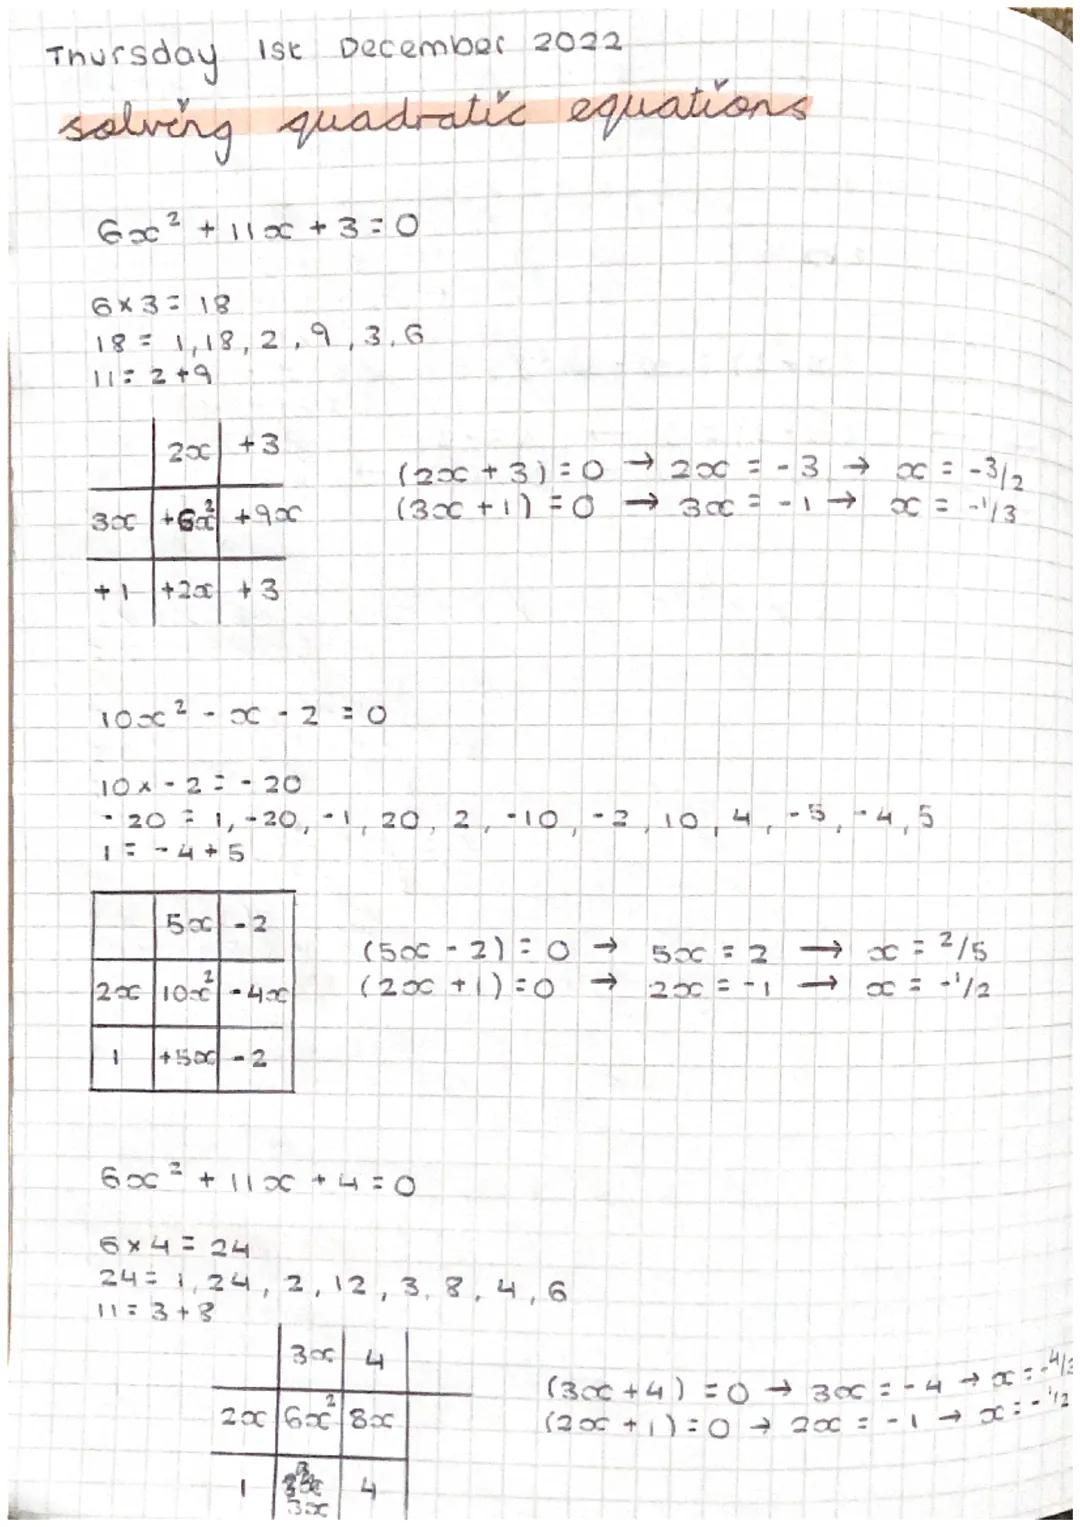 Thursday 1st December 2022
solving quadratic equations
6x² + 11x + 3 = 0
6 x 3 = 18
18 = 1, 18, 2, 9, 3, 6
11 = 2 + 9
2x +3
3x +6x² +9x
+1 +2x +3
(2x + 3) = 0 → 2x = -3 → x = -3/2
(3x + 1) = 0 → 3x = -1 → x = -1/3
10x² - x - 2 = 0
10 x -2 = -20
-20 = 1, -20, -1, 20, 2, -10, -2, 10, 4, -5, -4, 5
1 = -4 + 5
5x -2
2x 10x² -4x
1 +5x -2
(5x - 2) = 0 → 5x = 2 → x = 2/5
(2x + 1) = 0 → 2x = -1 → x = -1/2
6x² + 11x + 4 = 0
6 x 4 = 24
24 = 1, 24, 2, 12, 3, 8, 4, 6
11 = 3 + 8
3x 4
2x 6x² 8x
1 3x 4
(3x + 4) = 0 → 3x = -4 → x = -4/3
(2x + 1) = 0 → 2x = -1 → x = -1/2